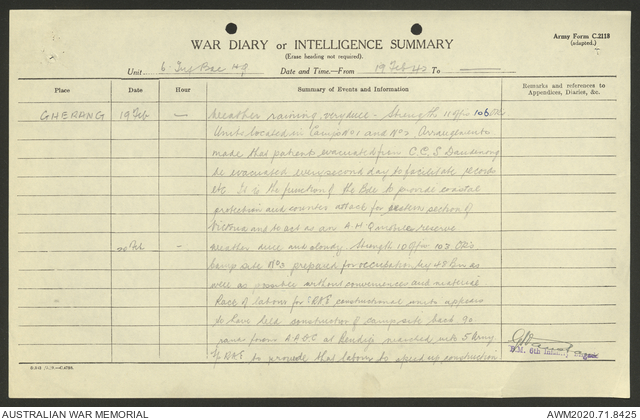 Army Form C.2118
(adapted.)
WAR DIARY or INTELLIGENCE SUMMARY
(Erase heading not required).
Unit 6 Inf Bde HQ Date and Time—From 19 Feb 42 To
Place Date Hour Summary of Events and Information Remarks and references to Appendices, Diaries, &c.
GHERANG 19 Feb — Weather raining, very dull - Strength 11 Offrs 106 ORs
Units located in Camps No 1 and No 2. Arrangements
made that patients evacuated from C.C.S Dandenong
be evacuated every second day to facilitate records
etc. It is the function of the Bde to provide coastal
protection and counter attack for eastern section of
Victoria and to act as an A.H.Q mobile reserve
20 Feb — Weather dull and cloudy. Strength 10 Offrs 103 ORs
Camp site No 3 prepared for occupation by 48 Bn as
well as possible without conveniences and material
Lack of labour for RAE constructional units appears
to have held construction of camp site back 90
from A.A.O.C at Bendigo marched into 5 Army
RAE to provide that labour to speed up construction
B.M. 6th Infantry Brigade
AUSTRALIAN WAR MEMORIAL
AWM2020.71.8425